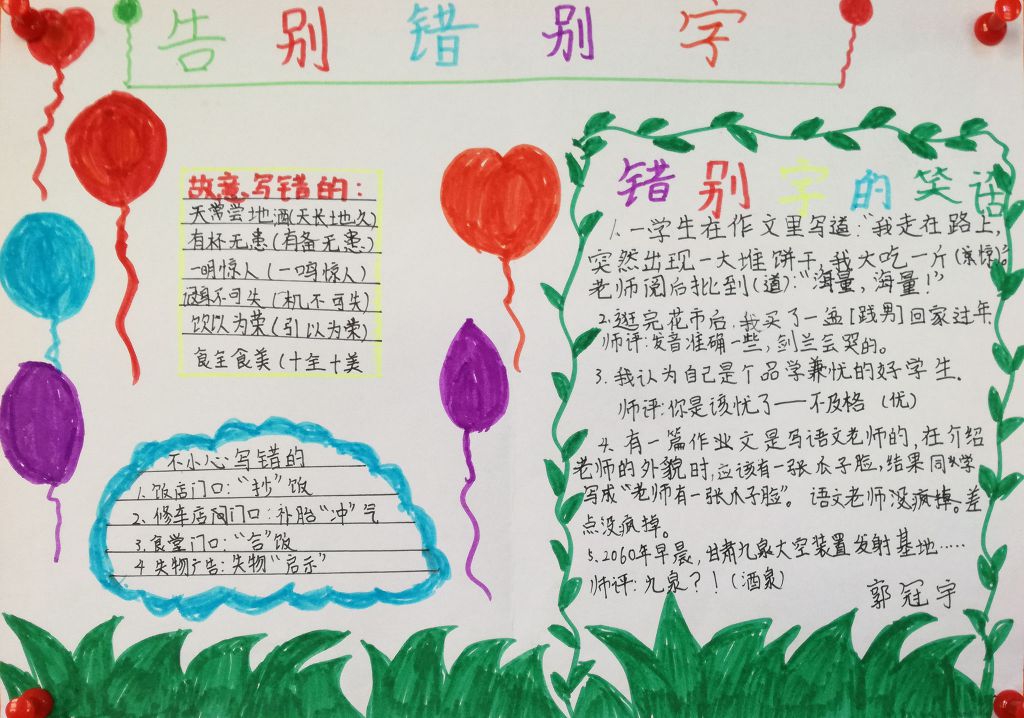 告别错别字
故意写错的:
天常尝地酒(天长地久)
有杯无患(有备无患)
一明惊人(一鸣惊人)
不可失(机不可失)
饮以为荣(引以为荣)
食全食美(十全十美
不小心写错的
1.饭店门口:“抄”饭
2.修车店间门口:补胎“冲”气
3.食堂门口:“合”饭
4.失物广告:失物“启示”
错别字的笑话
1.一学生在作文里写道:“我走在路上,
突然出现一大堆饼干,我大吃一斤(惊)。
老师阅后批到(道):“海量,海量!”
2.逛完花市后,我买了一盆[贱男]回家过年
师评:发音准确一些,剑兰会哭的。
3.我认为自己是个品学兼忧的好学生.
师评:你是该忧了——不及格(优)
4.有一篇作业文是写语文老师的,在介绍
老师的外貌时,应该有一张瓜子脸,结果同学
写成“老师有一张爪子脸”。语文老师没疯掉。差
点没疯掉。
5.2060年早晨,甘肃九泉太空装置发射基地……
师评:九泉?!(酒泉)
郭冠宇